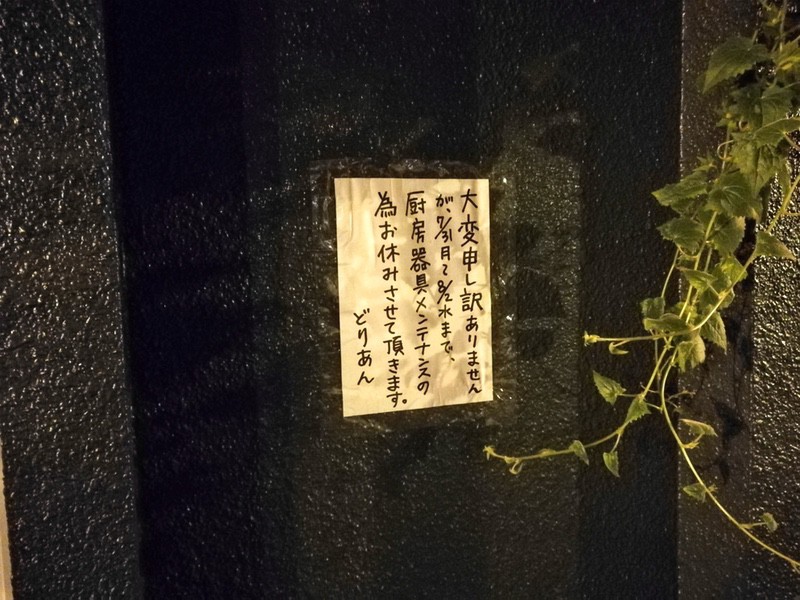 大変申し訳ありません
が、7/31月〜8/2水まで、
厨房器具メンテナンスの
為お休みさせて頂きます。
どりあん